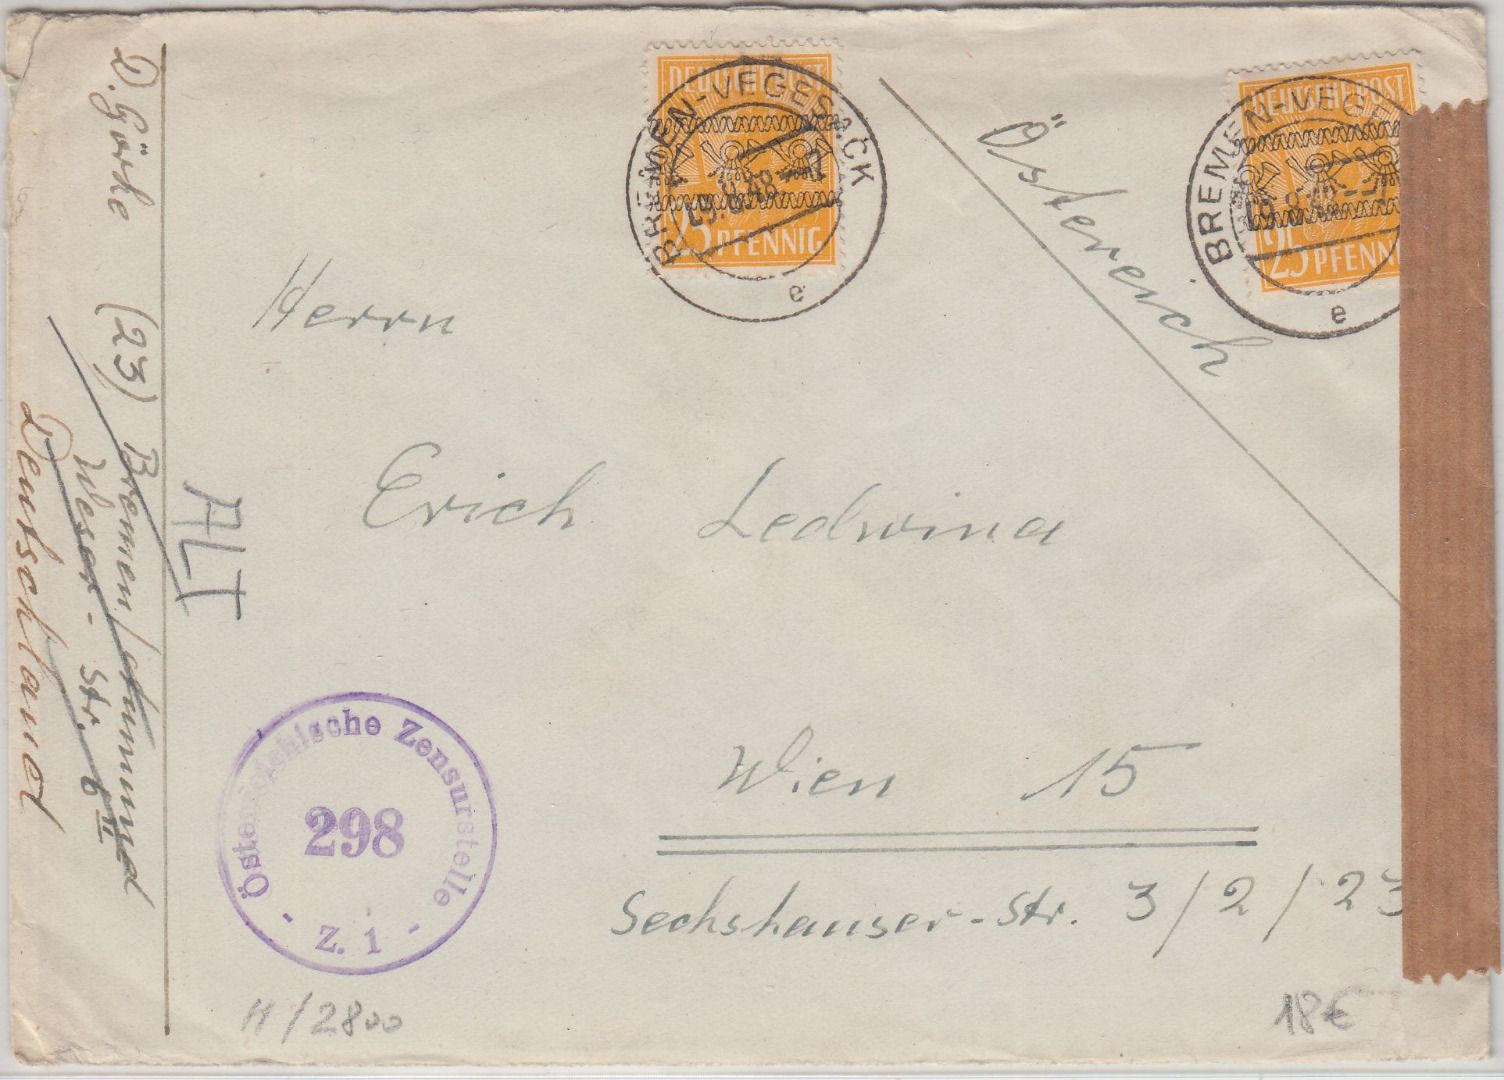 D. Görke
(23) Bremen/Aumund
Weser-Str. 6 II
Deutschland
ALT
DEUTSCHE POST
25 PFENNIG
BREMEN-VEGESACK
19.8.48
e
DEUTSCHE POST
25 PFENNIG
BREMEN-VEGE
19.8.48
e
Östereich
Herrn
Erich Ledwina
Wien 15
Sechshauser-Str. 3/2/23
Österreichische Zensurstelle
298
- Z. 1 -
H/2800
18€